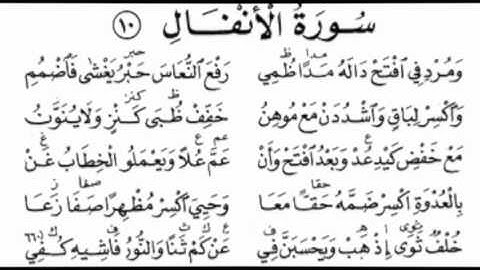 سُورَةُ الْأَنْفَالِ ١٠
وَمُرْدِفِي افْتَحْ دَالَهُ مَدًا ظَمِي رَفْعَ النُّعَاسَ حَبْرُ يَغْشَى فَاضْمُمِ
وَاكْسِرْ لِبَاقٍ وَاشْدُدَنْ مَعْ مُوهِنُ خَفِّفْ ظُبَى كَنْزٍ وَلَا يُنَوَّنُ
مَعْ خَفْضِ كَيْدِ عُدْ وَبَعْدُ افْتَحْ وَأَنْ عَمَّ عُلًا وَيَعْمَلُو الْخِطَابُ غَنْ
بِالْعُدْوَةِ اكْسِرْ ضَمَّهُ حَقًّا مَعَا وَحَيِيَ اكْسِرْ مُظْهِرًا صَفَا زَعَا
خُلْفٌ ثَوَى إِذْ هَبْ وَيَحْسَبَنَّ فِي عَنْ كَمْ ثَنَا وَالنُّورُ فَاشِيهِ كُفِي